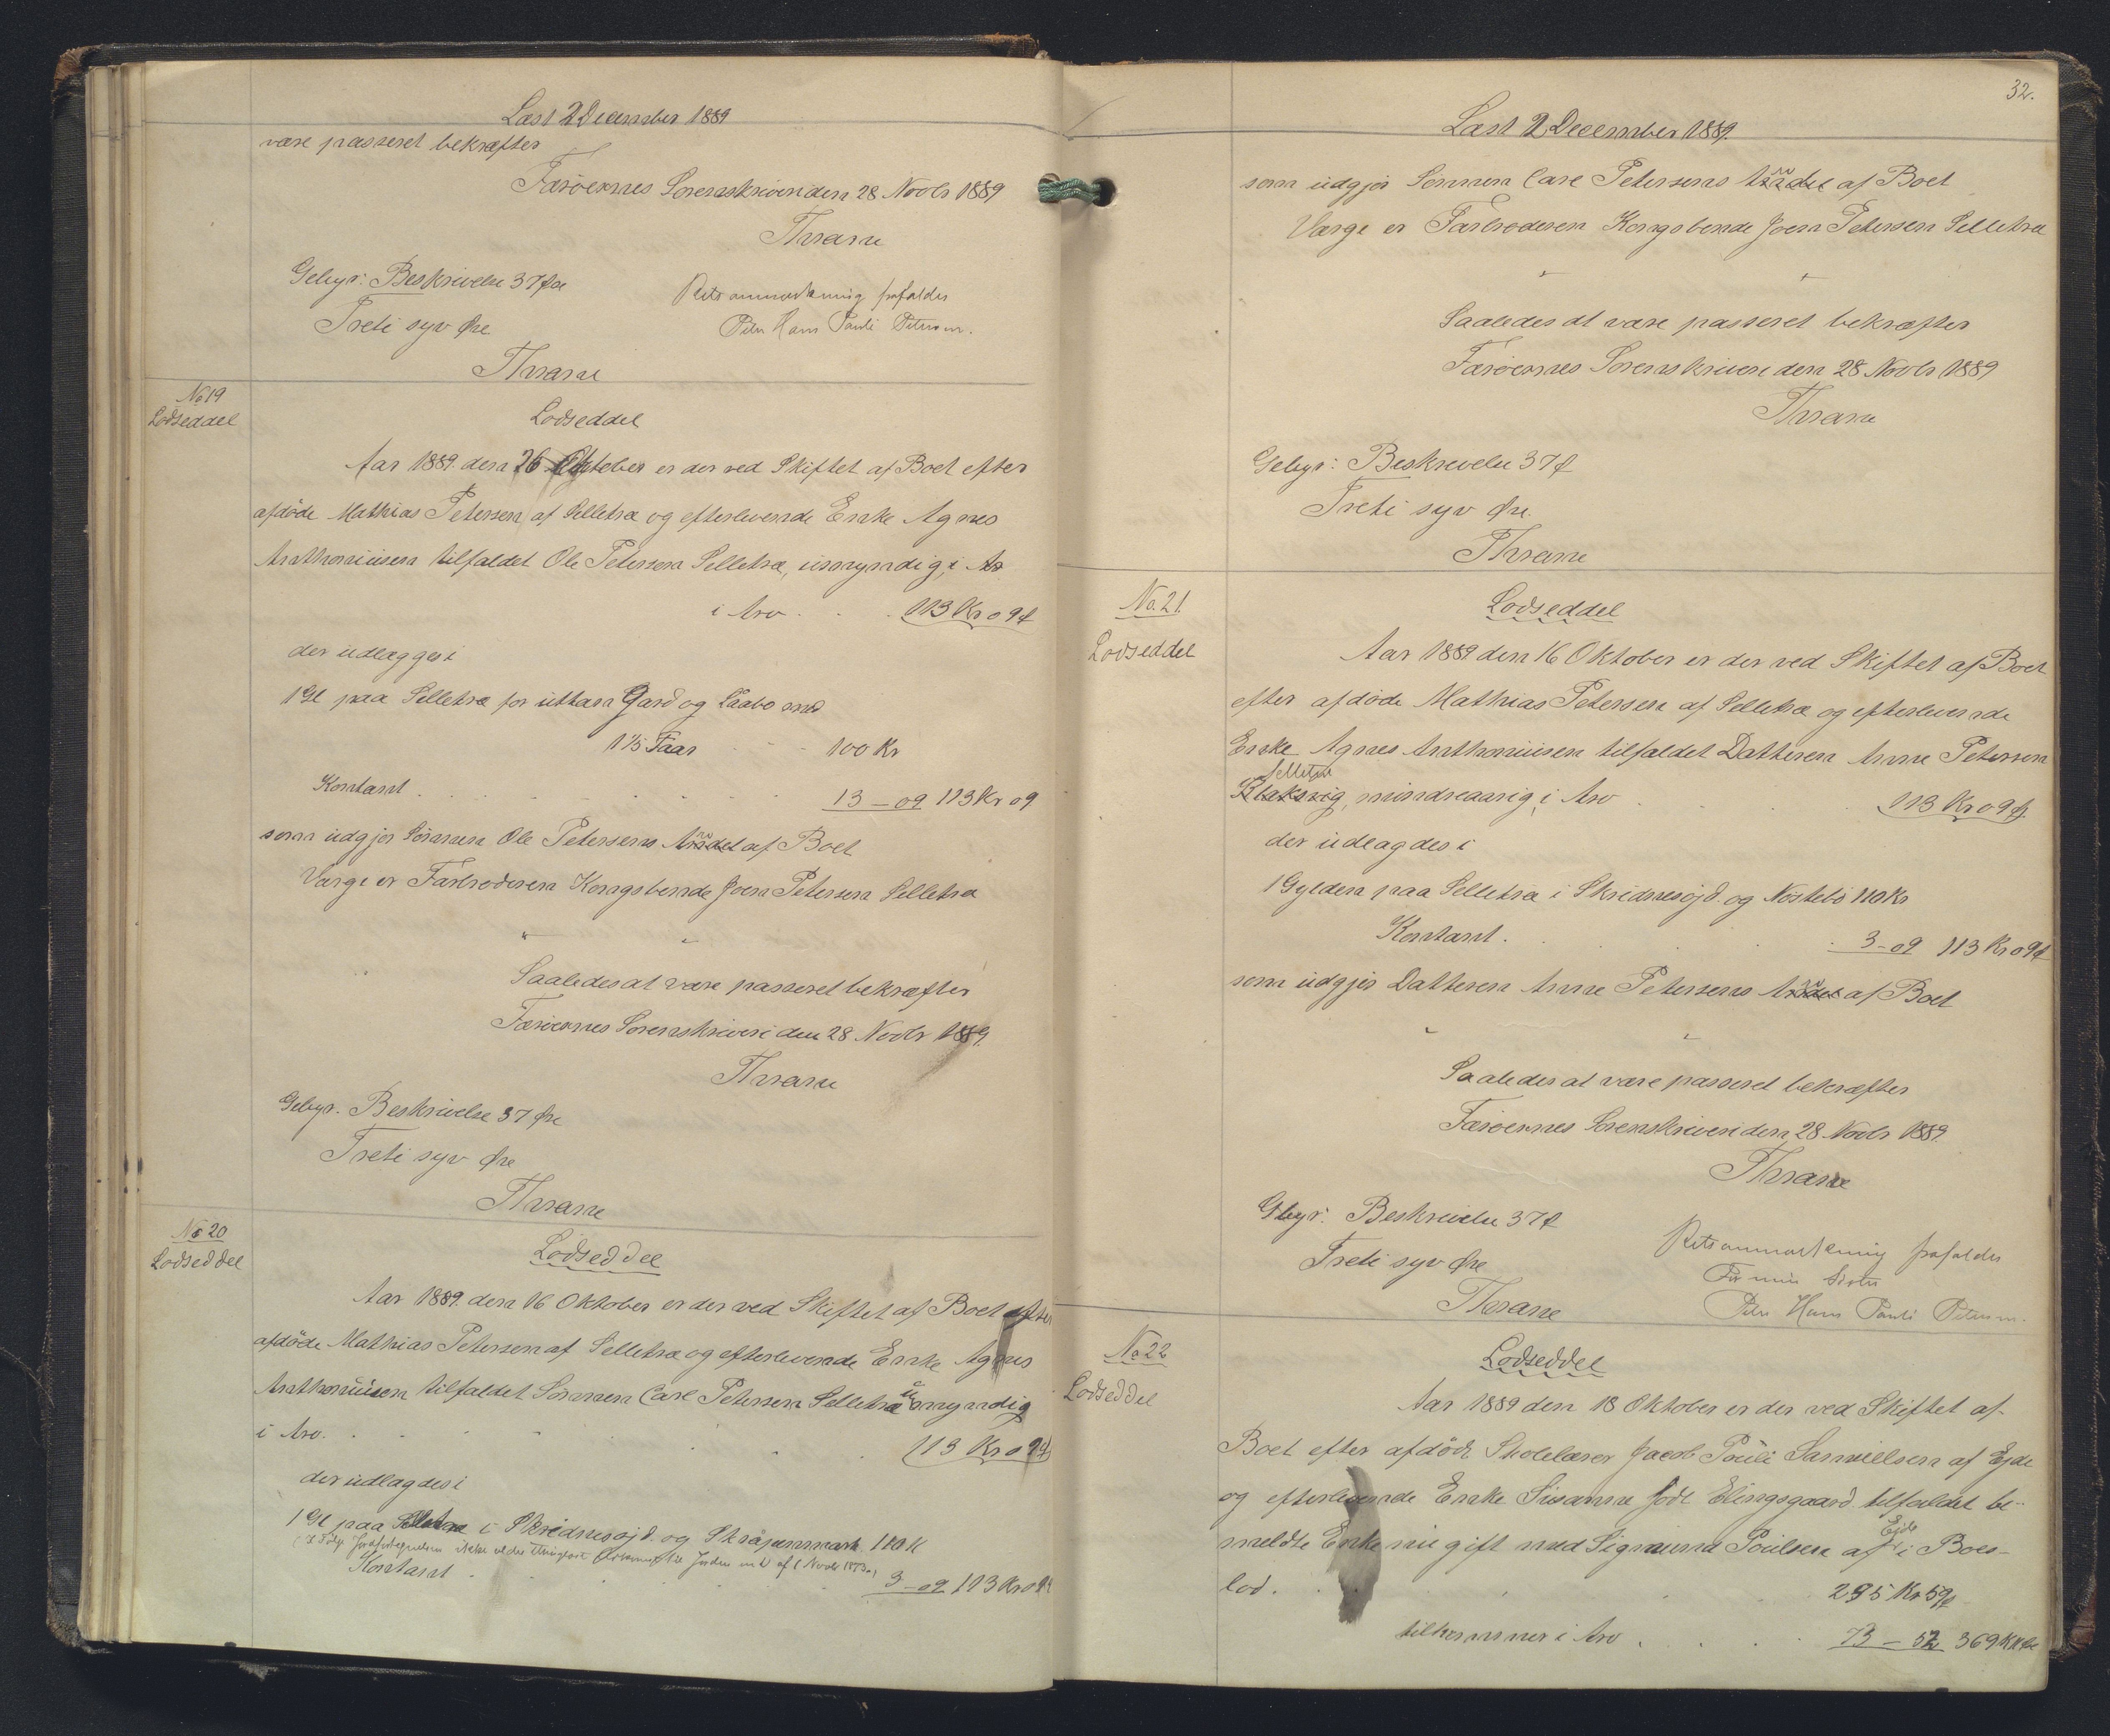 Læst 2 December 1889
være passeret bekræfter
Færøernes Sorenskriveri den 28 Novbr 1889
Thrane
Gebyr: Beskrivelse 37 Øre
Treti syv Øre
Thrane
Retsanmærkning frafaldes
Peter Hans Pauli Petersen.
No 19
Lodseddel
Lodseddel
Aar 1889 den 26 Oktober er der ved Skiftet af Boet efter
afdöde Mathias Petersen af Selletræ og efterlevende Enke Agnes
Anthoniüsen tilfaldet Ole Petersen Selletræ, umyndig, i Ar
i Arv . . . 113 Kr 09 f
der udlægges i
1 Gl paa Selletræ for uttara Gard og Laabo med
1 1/5 Faar . . 100 Kr
Kontant . . . . . . 13 – 09 113 Kr 09
som udgjør Sønnen Ole Petersens Arv af Boet
Værge er Farbroderen Kongsbonde Joen Petersen Selletræ
Saaledes at være passeret bekræfter
Færøernes Sorenskriveri den 28 Novbr 1889.
Thrane
Gebyr. Beskrivelse 37 Øre
Treti syv Øre
Thrane
No 20
Lodseddel
Lodseddel
Aar 1889. den 16 Oktober er der ved Skiftet af Boet efter
afdöde Mathias Petersen af Selletræ og efterlevende Enke Agnes
Anthoniüsen tilfaldet Sønnen Carl Petersen Selletræ umyndig
i Arv. . . . . . 113 Kr 09 f
der udlagdes i
1 Gl paa Selletræ i Skridnesøjd. og Skräpenmark 110 K
Kontant . . . 3 – 09 113 Kr 09 f
32.
Læst 2 December 1889.
som udgjør Sønnen Carl Petersens Arv af Boet
Værge er Farbroderen Kongsbonde Joen Petersen Selletræ
Saaledes at være passeret bekræfter
Færøernes Sorenskriveri den 28 Novbr 1889
Thrane
Gebyr: Beskrivelse 37 f
Treti syv Øre.
Thrane
No. 21.
Lodseddel
Lodseddel
Aar 1889 den 16 Oktober er der ved Skiftet af Boet
efter afdöde Mathias Petersen af Selletræ og efterlevende
Enke Agnes Anthoniüsen tilfaldet Datteren Anne Petersen
Selletræ
Klaksvig, mindreaarig, i Arv . . 113 Kr 09 f.
der udlagdes i
1 Gylden paa Selletræ i Skridnesøjd. og Nøstebö 110 Kr
Kontant . . . . 3 – 09 113 Kr 09 f
som udgjør Datteren Anne Petersens Arv af Boet
Saaledes at være passeret bekræfter
Færøernes Sorenskriveri den 28 Novbr 1889.
Thrane
Gbyr: Beskrivelse 37 f
Treti syv Øre
Thrane
Retsanmærkning frafaldes
For min Søster
Peter Hans Pauli Petersen.
No 22
Lodseddel
Lodseddel
Aar 1889 den 18 Oktober er der ved Skiftet af
Boet efter afdöde Skolelærer Jacob Pauli Samuelsen af Ejde
og efterlevende Enke Susanne født Elingsgaard tilfaldet be-
meldte Enke nu gift med Sigmund Poulsen af Ejde i Boes-
lod. . . . . 295 Kr 59 f
tilkommer i Arv . . . 73 – 52 369 Kr